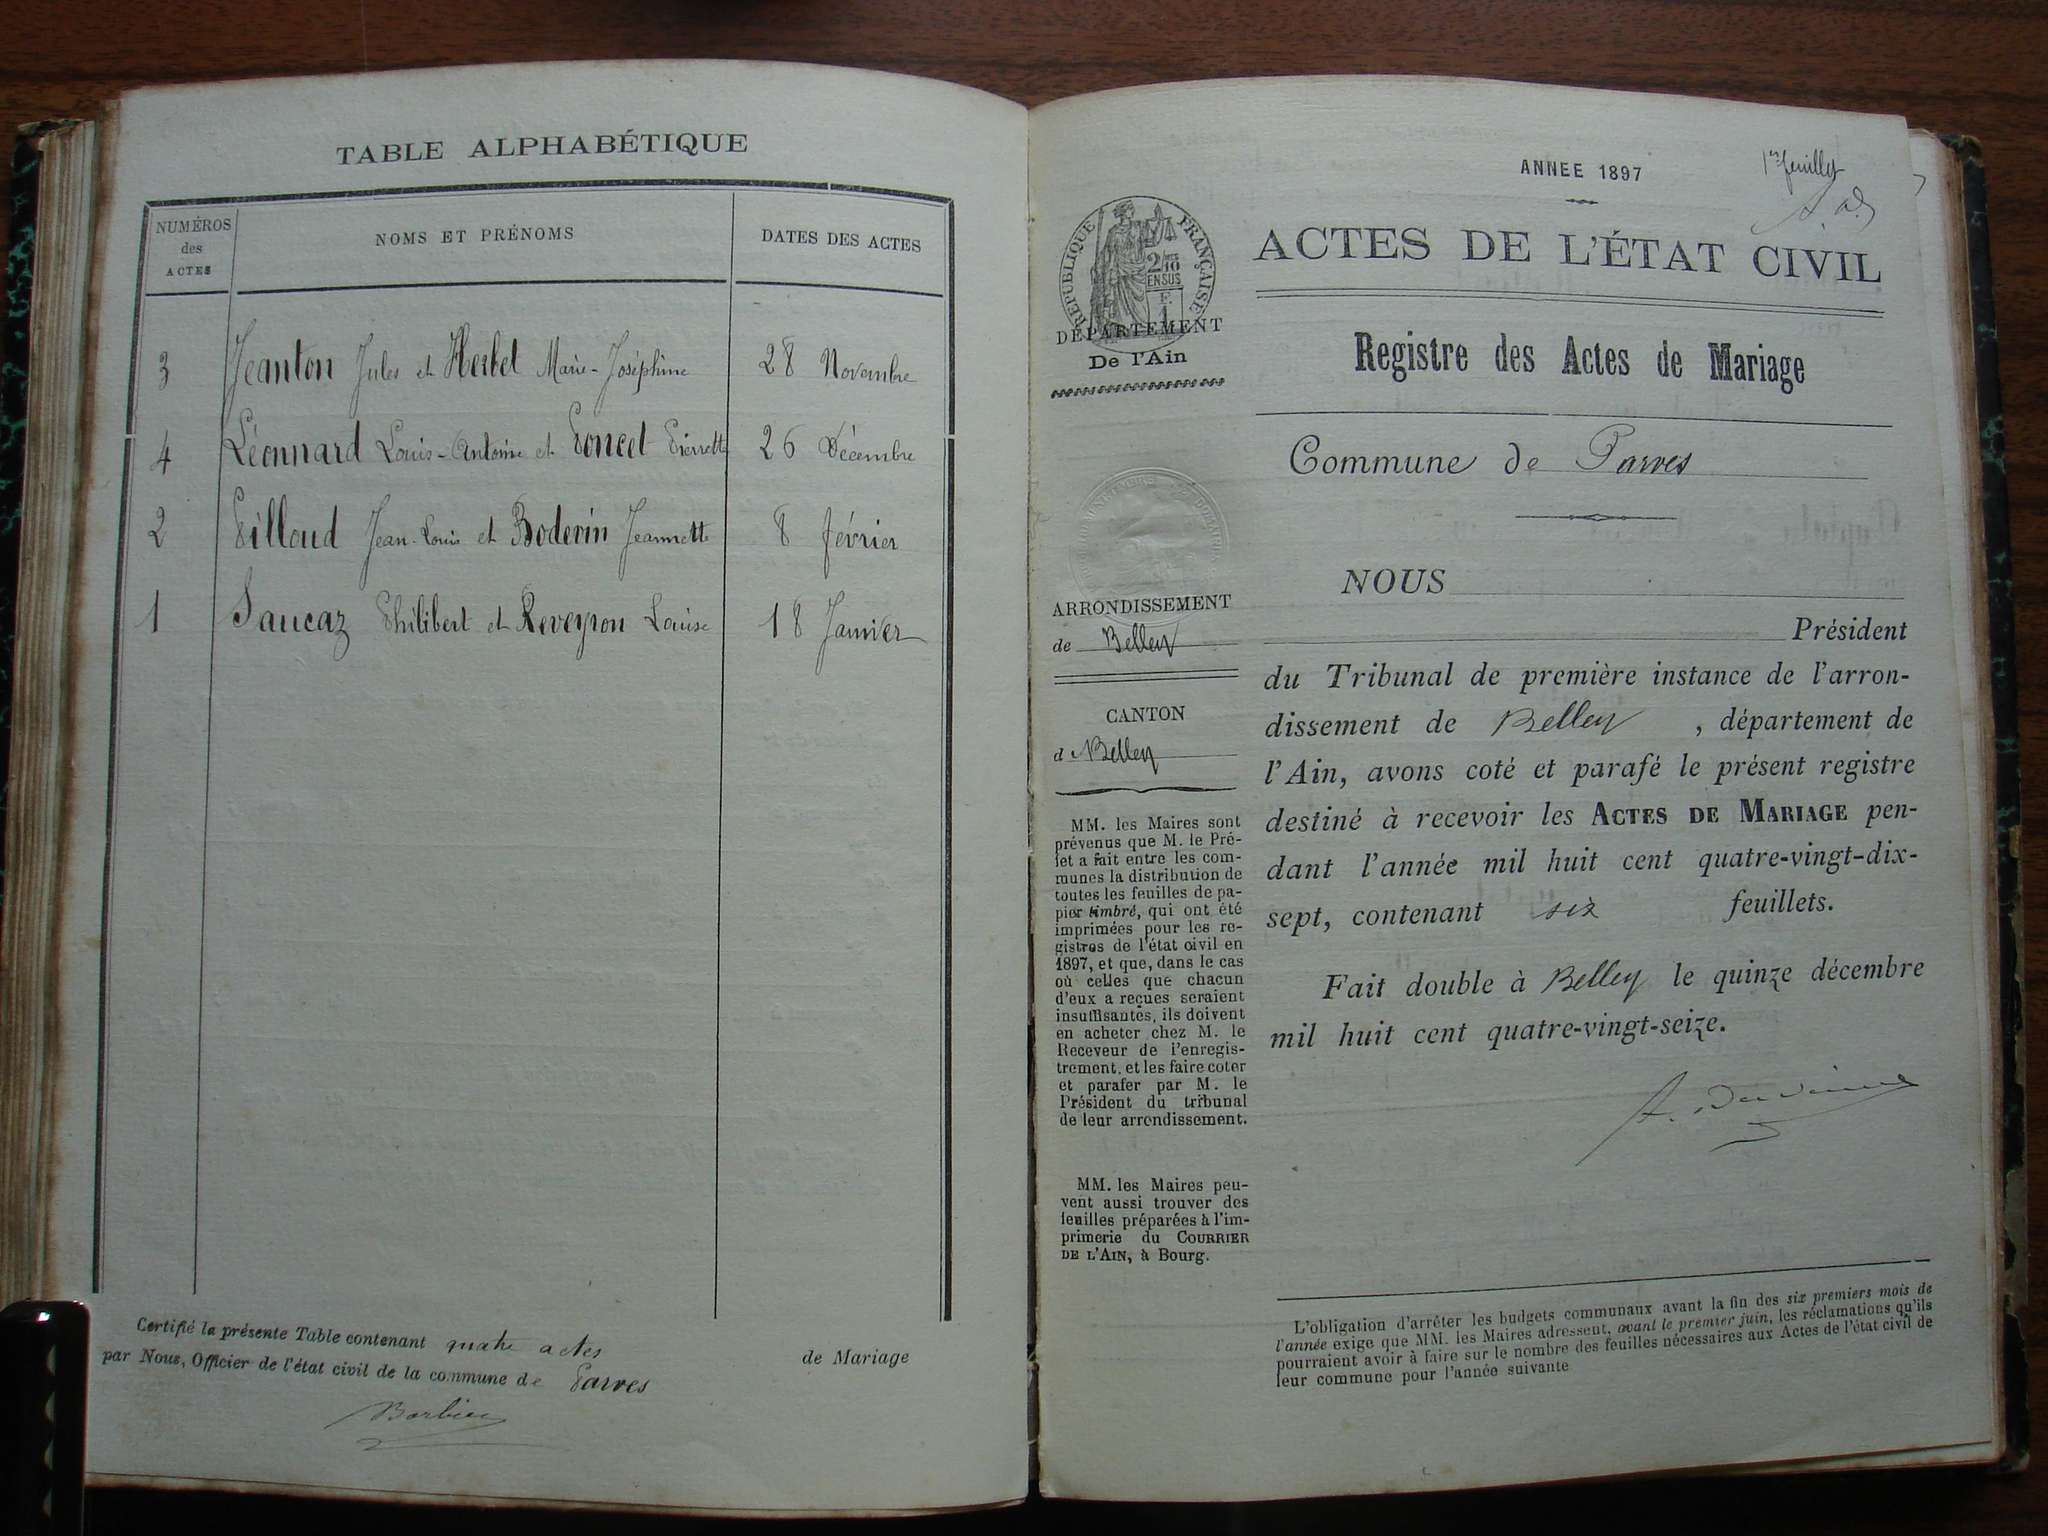 TABLE ALPHABÉTIQUE
NUMÉROS des ACTES
NOMS ET PRÉNOMS
DATES DES ACTES
3 Jeanton Jules et Herbet Marie-Joséphine 28 Novembre
4 Léonnard Louis-Antoine et Poncet Pierrette 26 Décembre
2 Pilloud Jean-Louis et Boderin Jeannette 8 février
1 Saucaz Philibert et Reveyron Louise 18 Janvier
Certifié la présente Table contenant quatre actes de Mariage
par Nous, Officier de l'état civil de la commune de Parves
Barbier
ANNEE 1897
1er feuillet
ACTES DE L'ÉTAT CIVIL
RÉPUBLIQUE FRANÇAISE
2/10 EN SUS
F. 1
DÉPARTEMENT
De l'Ain
Registre des Actes de Mariage
Commune de Parves
ARRONDISSEMENT
de Belley
CANTON
d Belley
MM. les Maires sont
prévenus que M. le Pré-
fet a fait entre les com-
munes la distribution de
toutes les feuilles de pa-
pier timbré, qui ont été
imprimées pour les re-
gistres de l'état civil en
1897, et que, dans le cas
où celles que chacun
d'eux a reçues seraient
insuffisantes, ils doivent
en acheter chez M. le
Receveur de l'enregis-
trement, et les faire coter
et parafer par M. le
Président du tribunal
de leur arrondissement.
MM. les Maires peu-
vent aussi trouver des
feuilles préparées à l'im-
primerie du COURRIER
DE L'AIN, à Bourg.
NOUS
Président
du Tribunal de première instance de l'arron-
dissement de Belley , département de
l'Ain, avons coté et parafé le présent registre
destiné à recevoir les ACTES DE MARIAGE pen-
dant l'année mil huit cent quatre-vingt-dix-
sept, contenant six feuillets.
Fait double à Belley le quinze décembre
mil huit cent quatre-vingt-seize.
L'obligation d'arrêter les budgets communaux avant la fin des six premiers mois de
l'année exige que MM. les Maires adressent, avant le premier juin, les réclamations qu'ils
pourraient avoir à faire sur le nombre des feuilles nécessaires aux Actes de l'état civil de
leur commune pour l'année suivante